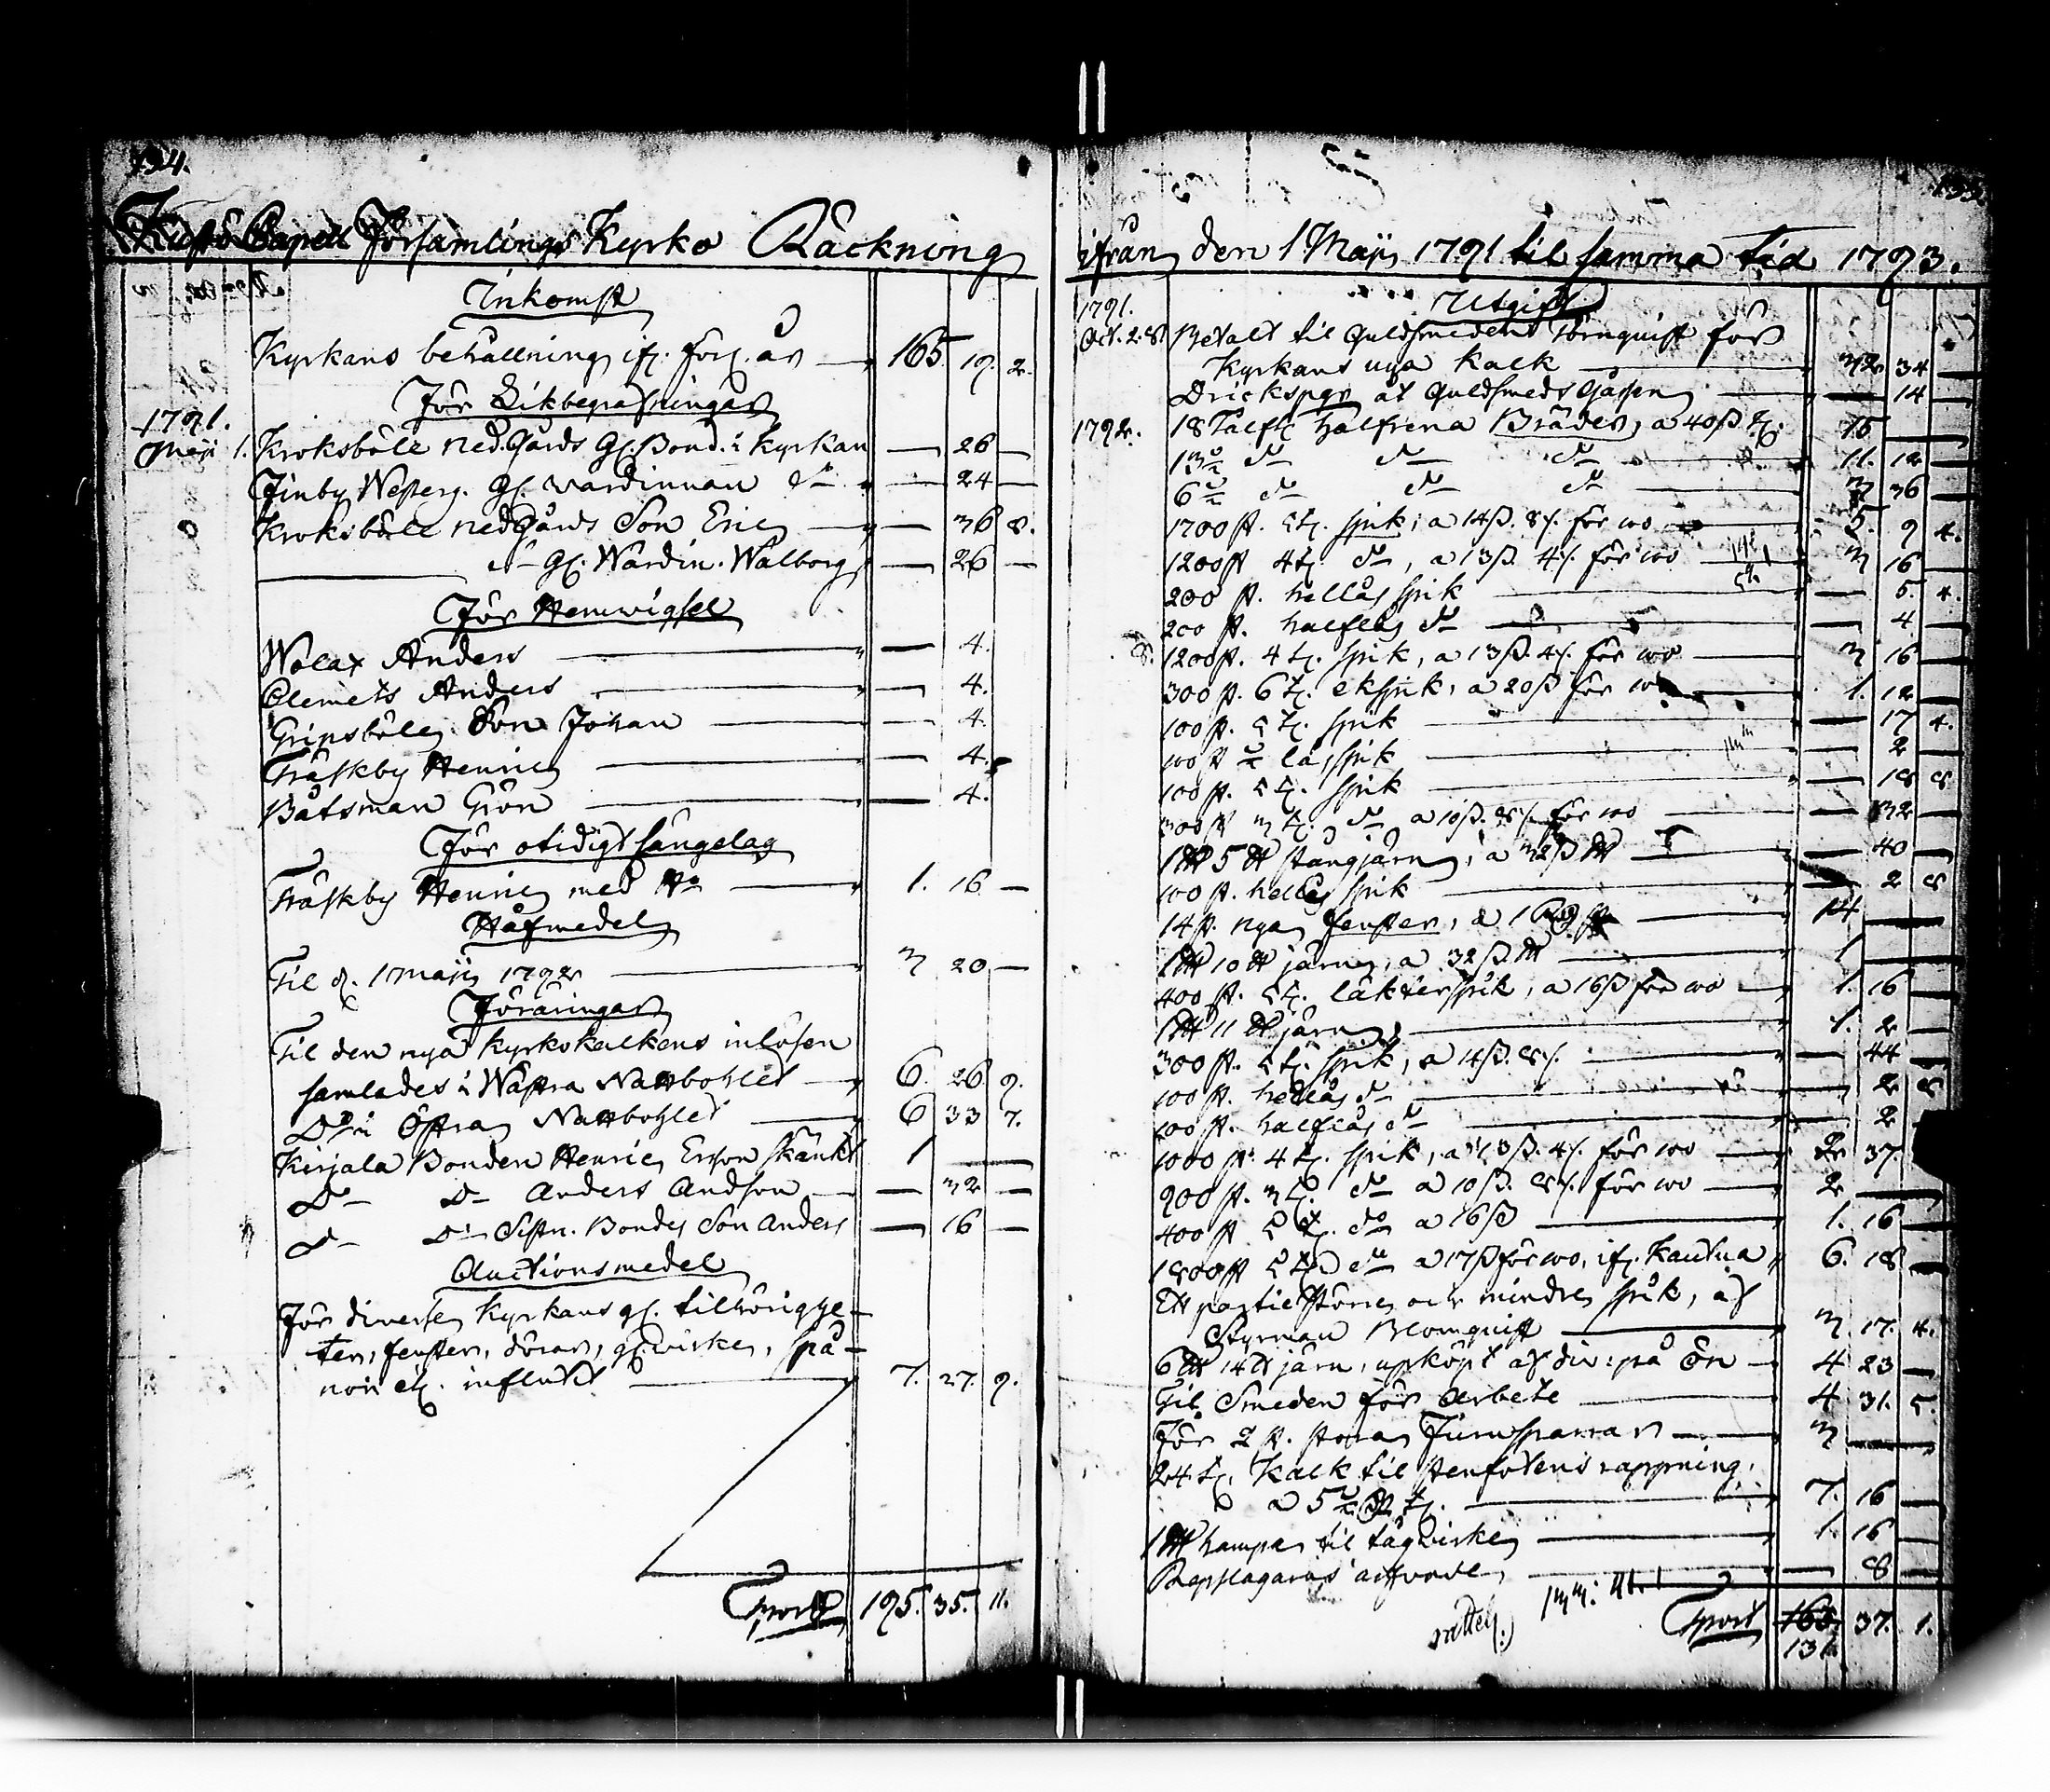 134.
Kustö Capell Församlings Kyrko Räckning
Inkomst
Kyrkans behållning if. förf. år — 165. 19. 2.
För Likbegrafningar
1791.
Maji 1. Kroksböle Nedgårds gl. Bond. i Kyrkan — 26 —
Finby Westerg. gl. wardinnan do — 24 —
Kroksböle Nedgårds Son Eric — 36 8.
do gl. Wärdin. Walborg — 26 —
För Hemwigsel
Anders — 4.
Clemets Anders — 4.
Gripsböle Son Johan — 4.
Träskby Henric — 4.
Båtsman Grön — 4.
För otidigt sängelag
Träskby Henric med 1. 16 —
Håfmedel
Til d. 1 Maji 1792 3 20 —
Föräringar
Til den nya Kyrkokalkens inlösen
samlades i Wästra Nattbohlet 6. 26. 9.
Do i Östra Nattbohlet 6 33 7.
Kirjala Bonden Henric Ersson skänkt 1 —
Do Do Anders Andson — 32 —
Do Do Bondes Son Anders — 16 —
Auctionsmedel
För diverse Kyrkans gl. tilhörighe-
ter, fenster, dörar, gl. wirke, spå-
nor etc. influtit 7. 27. 9.
Tport 195. 35. 11.
135.
ifrån den 1 Maji 1791 til samma tid 1793.
Utgift
1791.
Oct. 28. Betalt til Guldsmeden Törnquist för
Kyrkans nya Kalk 32 34 —
Drickspgr åt Guldsmeds Gässen — 14 —
1792. 18 Tolft halfrena Bräder, a 40ß t. 15 —
13½ do do do 11. 12 —
6½ do do do 3 36 —
1700 st. 5 t. spik, a 14ß. 8/. för 100 5. 9 4.
1200 st 4 t. do, a 13ß. 4/. för 100 3 16 —
200 st. hellås spik — 5. 4.
200 st. halflås do — 4 —
1200 st. 4 t. spik, a 13ß. 4/. för 100 3 16 —
300 st. 6 t. ekspik, a 20ß för 100 1. 12 —
100 st. 5 t. spik — 17 4.
100 st ½ låsspik — 2 —
100 st. 5 t. spik — 18 8.
300 st 3 t. do a 10ß. 8/. för 100 — 32 —
1 ℔ 5 ℔ stångjärn, a 32ß ℔ — 40 —
100 st. hellås spik — 2 8
14 st. nya fenster, a 1 14 —
1 ℔ 10 ℔ järn, a 32ß. ℔ 1 —
400 st. 5 t. läkterspik, a 16ß för 100 1. 16 —
1 ℔ 11 ℔ järn 1. 2 —
300 st. 5 t. spik, a 14ß. 8/. — 44 —
100 st. hellås do — 2 8
100 st. halflås do — 2 —
1000 st. 4 t. spik, a 13ß. 4/. för 100 2 37.
900 st. 3 t. do a 10ß. 8/. för 100 2 —
400 st 5 t. do a 16ß 1. 16 —
1800 st 5 t. do a 17ß för 100, if. Kautua 6. 18 —
Ett partie större och mindre spik, af
Styrman Blomquist 3. 17. 4.
6 ℔ 14 ℔ järn, upköpt af div: på Ön 4 23 —
Til Smeden för Arbete 4 31. 5.
För 2 st. stora Furusparrar 3 —
24 t. Kalk til stenfotens rappning,
a 5 t. 7. 16 —
1 ℔ hampa til tågwirke 1. 16 —
Repslagarns arfvode — 8 —
Tport 163 37. 1.
131.